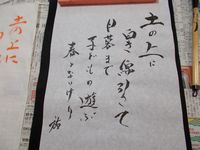 土の上に
白き線引きて
日暮まで
子どもの遊ぶ
春となりけり
土の上に